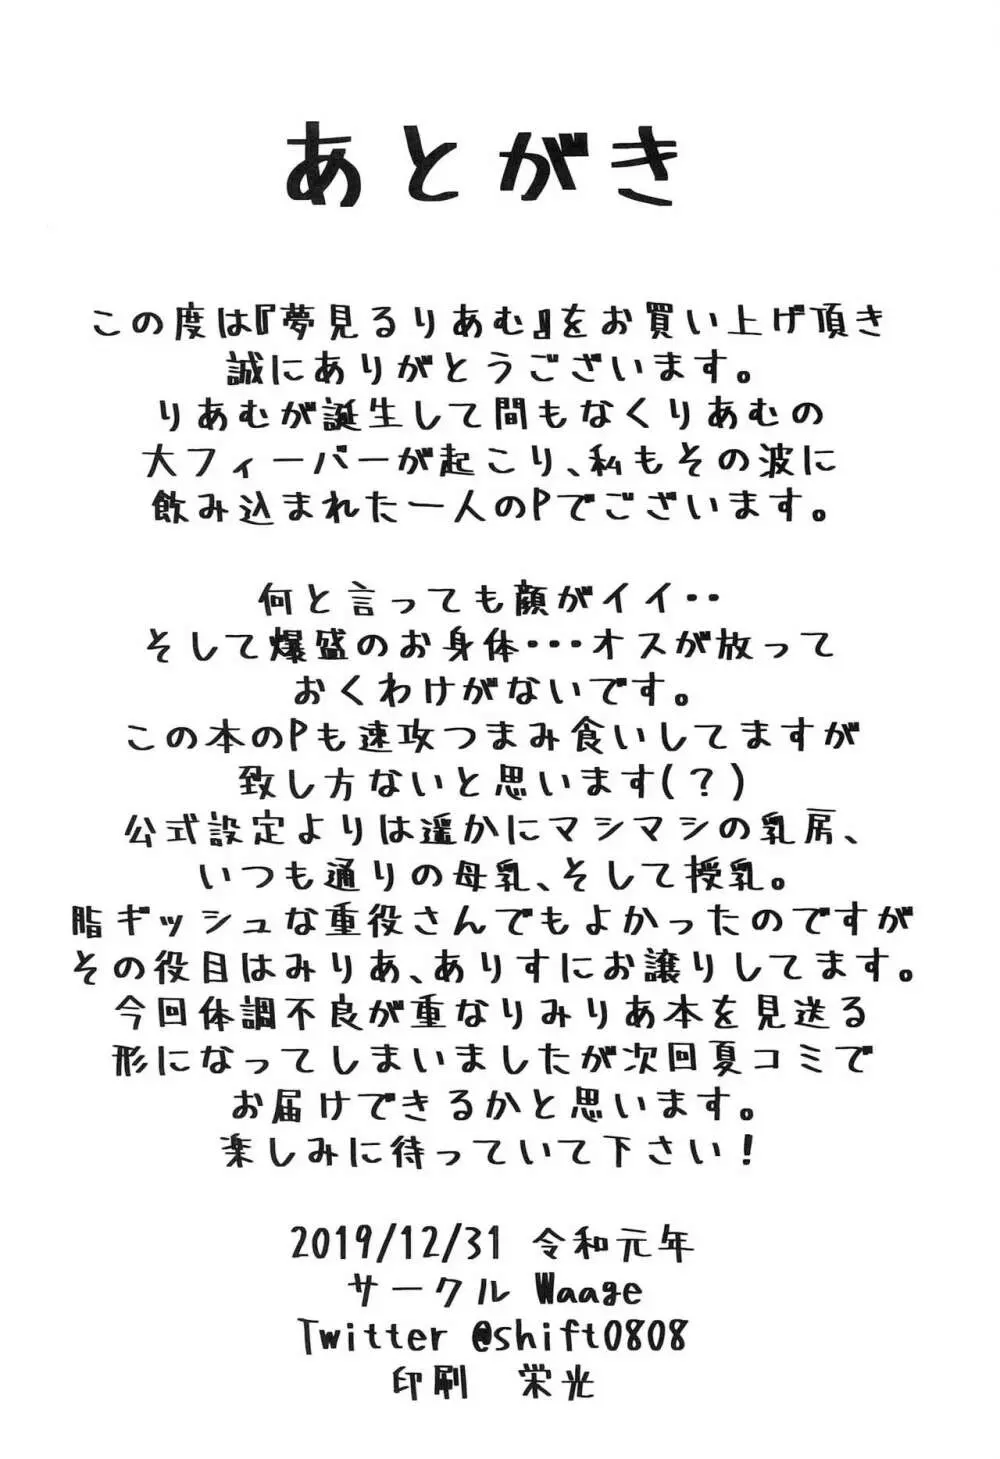 あとがき
この度は『夢見るりあむ』をお買い上げ頂き
誠にありがとうございます。
りあむが誕生して間もなくりあむの
大フィーバーが起こり、私もその波に
飲み込まれた一人のPでございます。
何と言っても顔がイイ・・
そして爆盛のお身体・・・オスが放って
おくわけがないです。
この本のPも速攻つまみ食いしてますが
致し方ないと思います(?)
公式設定よりは遥かにマシマシの乳房、
いつも通りの母乳、そして授乳。
脂ギッシュな重役さんでもよかったのですが
その役目はみりあ、ありすにお譲りしてます。
今回体調不良が重なりみりあ本を見送る
形になってしまいましたが次回夏コミで
お届けできるかと思います。
楽しみに待っていて下さい!
2019/12/31 令和元年
サークル Waage
Twitter @shift0808
印刷　栄光